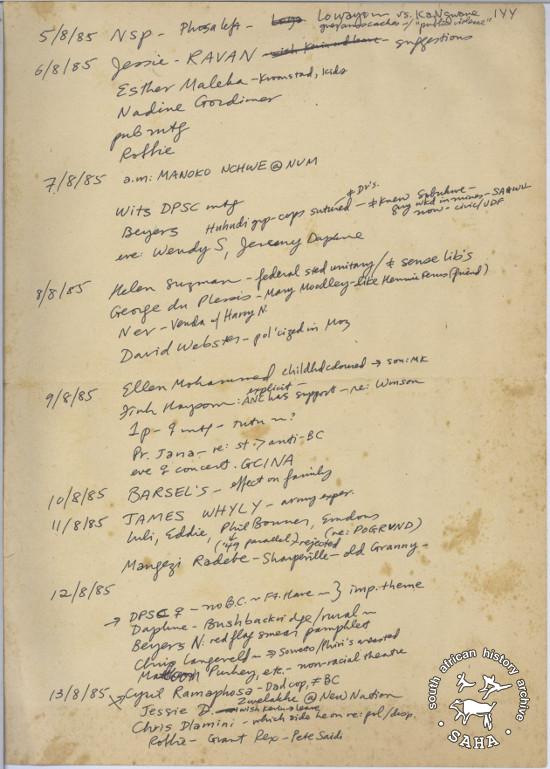 144
5/8/85 Nsp - Phosa left - Lowayom vs. KaNgwane
"public violence"
6/8/85 Jessie - RAVAN - suggestions
Esther Maleka - Kroonstad, kids
Nadine Gordimer
pub mtg
Robbie
7/8/85 a.m: MANOKO NCHWE @ NUM
Wits DPSC mtg
Beyers Huhudi grp - cops sutured - knew Sobukwe -
Dr's.
guy wkd in money - SAAWU
now - civic/UDF
eve: Wendy S, Jeremy Daphne
8/8/85 Helen Suzman - federal sted unitary / sense lib's
George du Plessis - Mary Moodley - like Hennie Ferus (friend)
Nev - Venda w/ Harry N.
David Webster - pol'cized in Moz
9/8/85 Ellen Mohammed childhd coloured → son: MK
Fink Haysom: explicit - ANC has support - re: Wmson
1p - ♀ mtg - tutu ~?
Pr. Jana - re: st. > anti-BC
eve ♀ concert. GCINA
10/8/85 BARSEL'S - effect on family
11/8/85 JAMES WHYLY - army exper.
Luli, Eddie, Phil Bonner,
('49 parallel) rejected (re: POGRUND)
Mangezi Radebe - Sharpeville - old Granny -
12/8/85
→ DPSC ♀ - no B.C. ~ Ft. Hare ~ } imp. theme
Daphne - Bushbuckridge/rural ~
Beyers N: red flag smear pamphlet
Chris Langeveld - → Soweto/Phiri's arrested
Purkey, etc. - non-racial theatre
13/8/85 Cyril Ramaphosa - Dad cop, ≠ BC
Jessie D. - Zwelakhe @ New Nation
wish Karin a leave
Chris Dlamini - which side he on re: pol/disp.
Robbie - Grant Rex - Pete Saids
south african history archive
SAHA